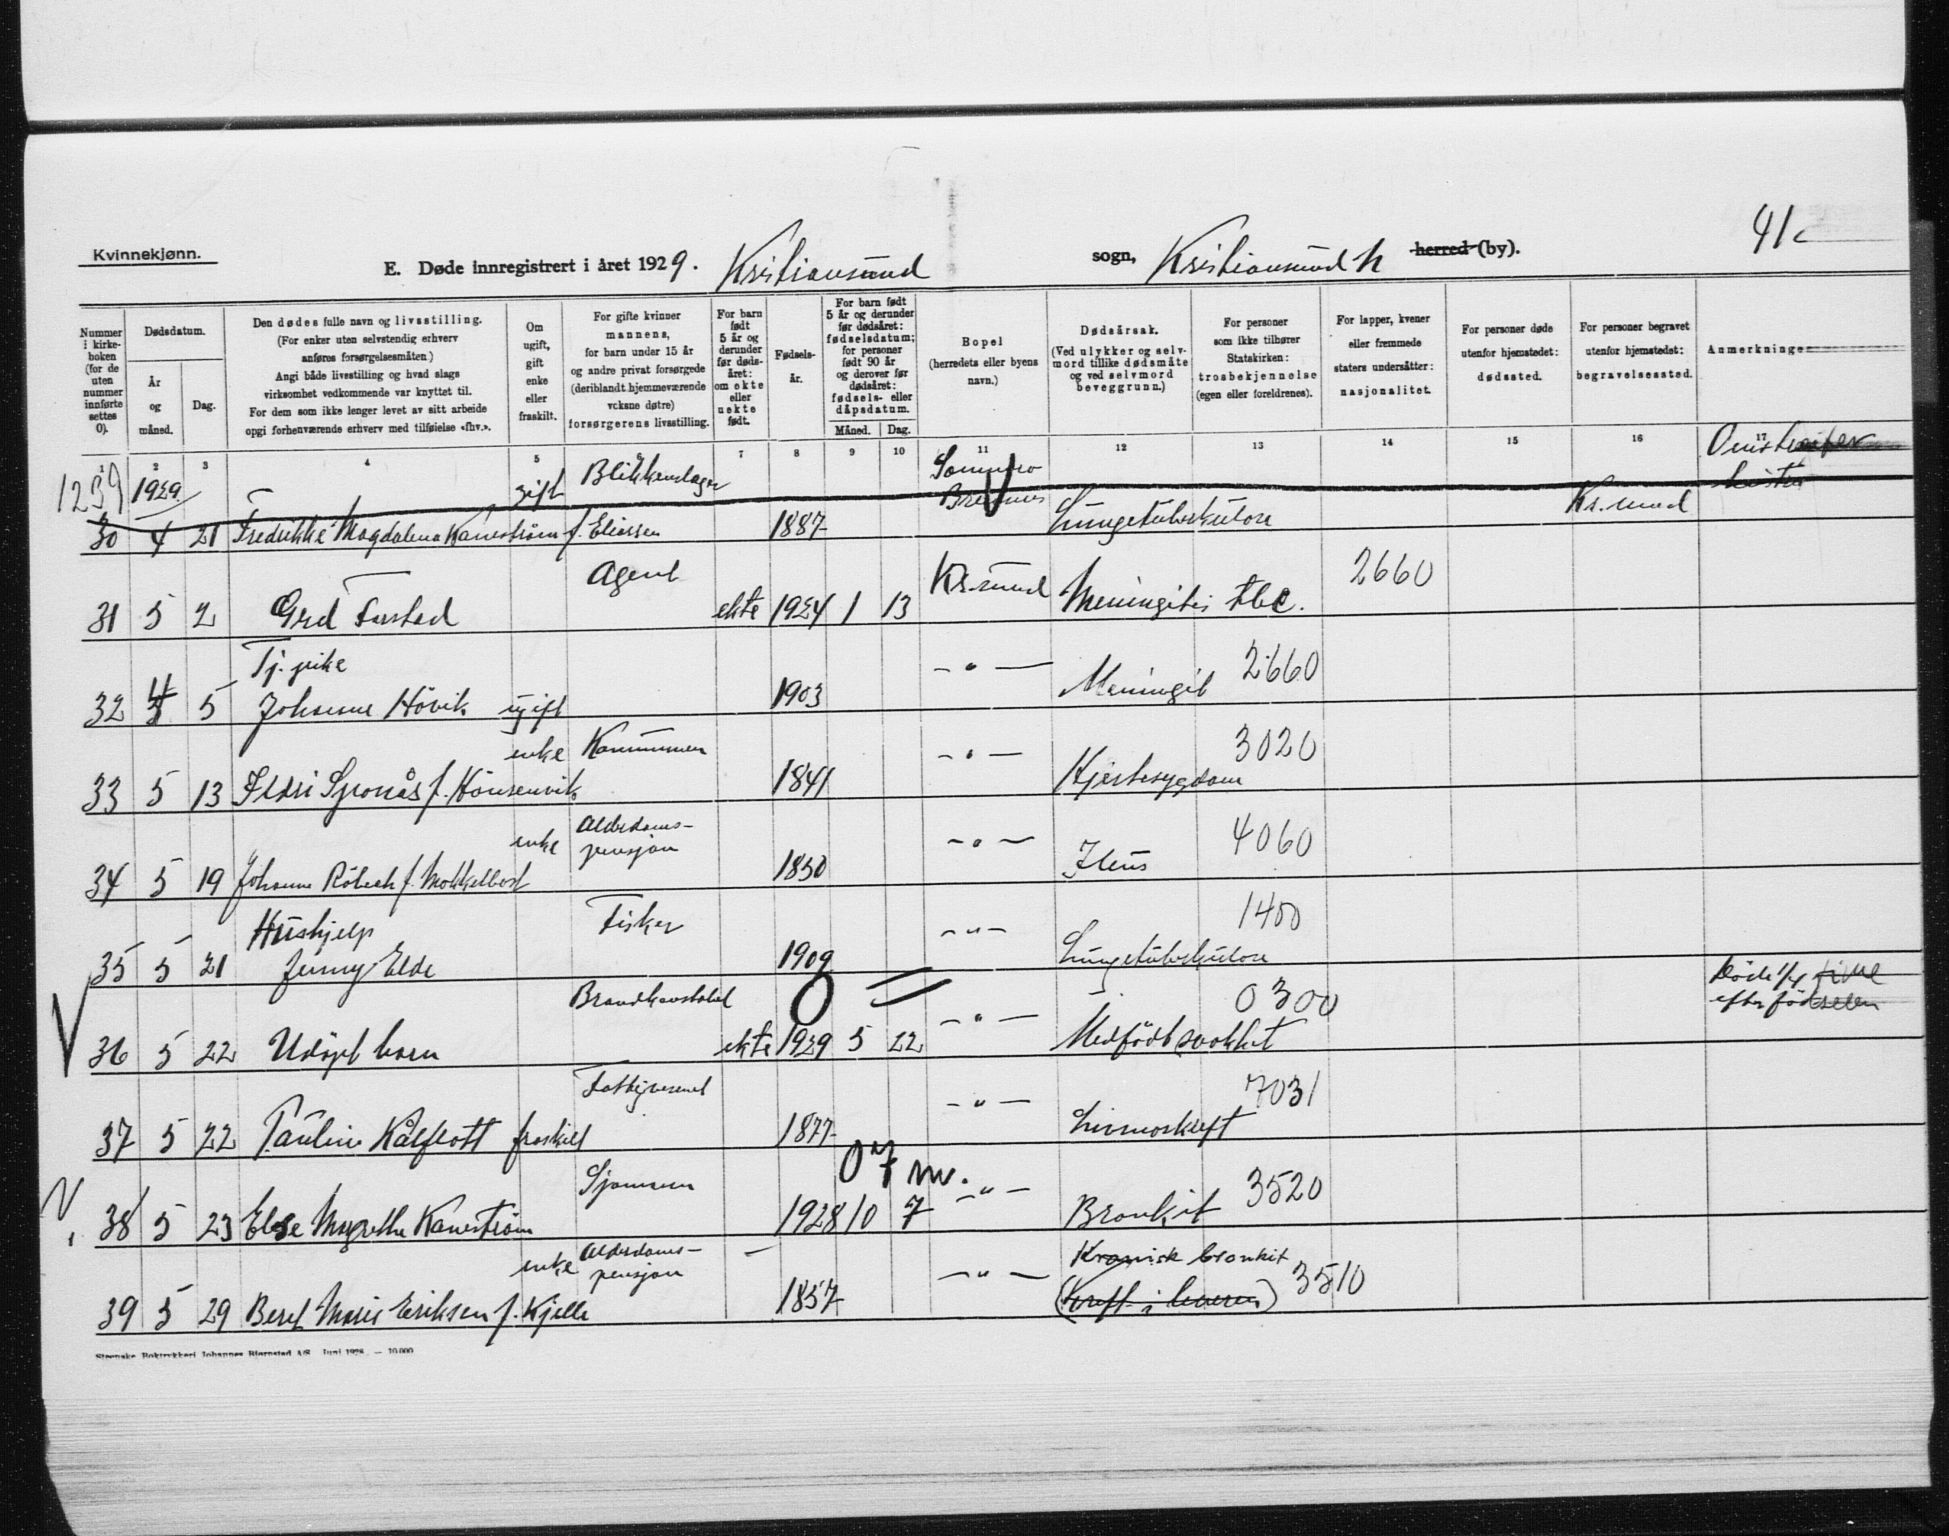 41
Kvinnekjønn.
E. Døde innregistrert i året 1929. Kristiansund sogn, Kristiansund N herred (by).
Nummer i kirkeboken (for de uten nummer innførte settes 0).
Dødsdatum.
År og måned.
Dag.
Den dødes fulle navn og livsstilling.
(For enker uten selvstendig erhverv anføres forsørgelsesmåten.)
Angi både livsstilling og hvad slags virksomhet vedkommende var knyttet til.
For dem som ikke lenger levet av sitt arbeide opgi forhenværende erhverv med tilføielse «fhv.».
Om ugift, gift enke eller fraskilt.
For gifte kvinner mannens, for barn under 15 år og andre privat forsørgede (deriblandt hjemmeværende voksne døtre) forsørgerens livsstilling.
For barn født 5 år og derunder før dødsåret: om ekte eller uekte født.
Fødselsår.
For barn født 5 år og derunder før dødsåret: fødselsdatum; for personer født 90 år og derover før dødsåret: fødsels- eller dåpsdatum.
Måned. Dag.
Bopel (herredets eller byens navn.)
Dødsårsak. (Ved ulykker og selvmord tillike dødsmåte og ved selvmord beveggrunn.)
For personer som ikke tilhører Statskirken: trosbekjennelse (egen eller foreldrenes).
For lapper, kvener eller fremmede staters undersåtter: nasjonalitet.
For personer døde utenfor hjemstedet: dødssted.
For personer begravet utenfor hjemstedet: begravelsessted.
Anmerkninger
1 2 3 4 5 7 8 9 10 11 12 13 14 15 16 17
1239 1929 gift Blikkenslager
30 4 21 Fredrikke Magdalena Kanestrøm f. Eliassen 1887 Lungetuberkulose Kr.sund
Agent Kr.sund 2660
31 5 2 Grd Farstad ekte 1924 1 13 Meningitis tbc.
Tj. pike -"- 2660
32 4 5 Johanne Hövik ugift 1903 Meningit
enke Kommunen -"- 3020
33 5 13 1841 Hjertesygdom
enke Alderdoms-
pensjon -"- 4060
34 5 19 1850 Ileus
Hushjelp Fisker -"- 1400
35 5 21 Jenny Elde 1909 Lungetuberkulose
Brandkonstabel 0 -"- 0300
efter fødselen
36 5 22 Udöpt barn ekte 1929 5 22 Medfödt svakhet
Fattigvesenet -"- 7031
37 5 22 Pauline Kålflott fraskilt 1877 Livmorkreft
Sjømann 07 m. -"- 3520
38 5 23 Else Magrethe Kanestrøm 1928 10 7 Bronkit
enke Alderdoms-
pensjon -"- Kronisk bronkit 3510
39 5 29 Beret Marie Eriksen f. Kjelle 1857 (Kreft i leveren)
Steenske Boktrykkeri Johannes Bjørnstad A/S. Juni 1928. — 10 000